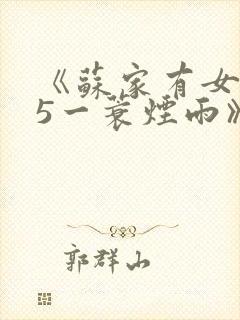 《蘇家有女
5一蓑煙雨》
郭群山